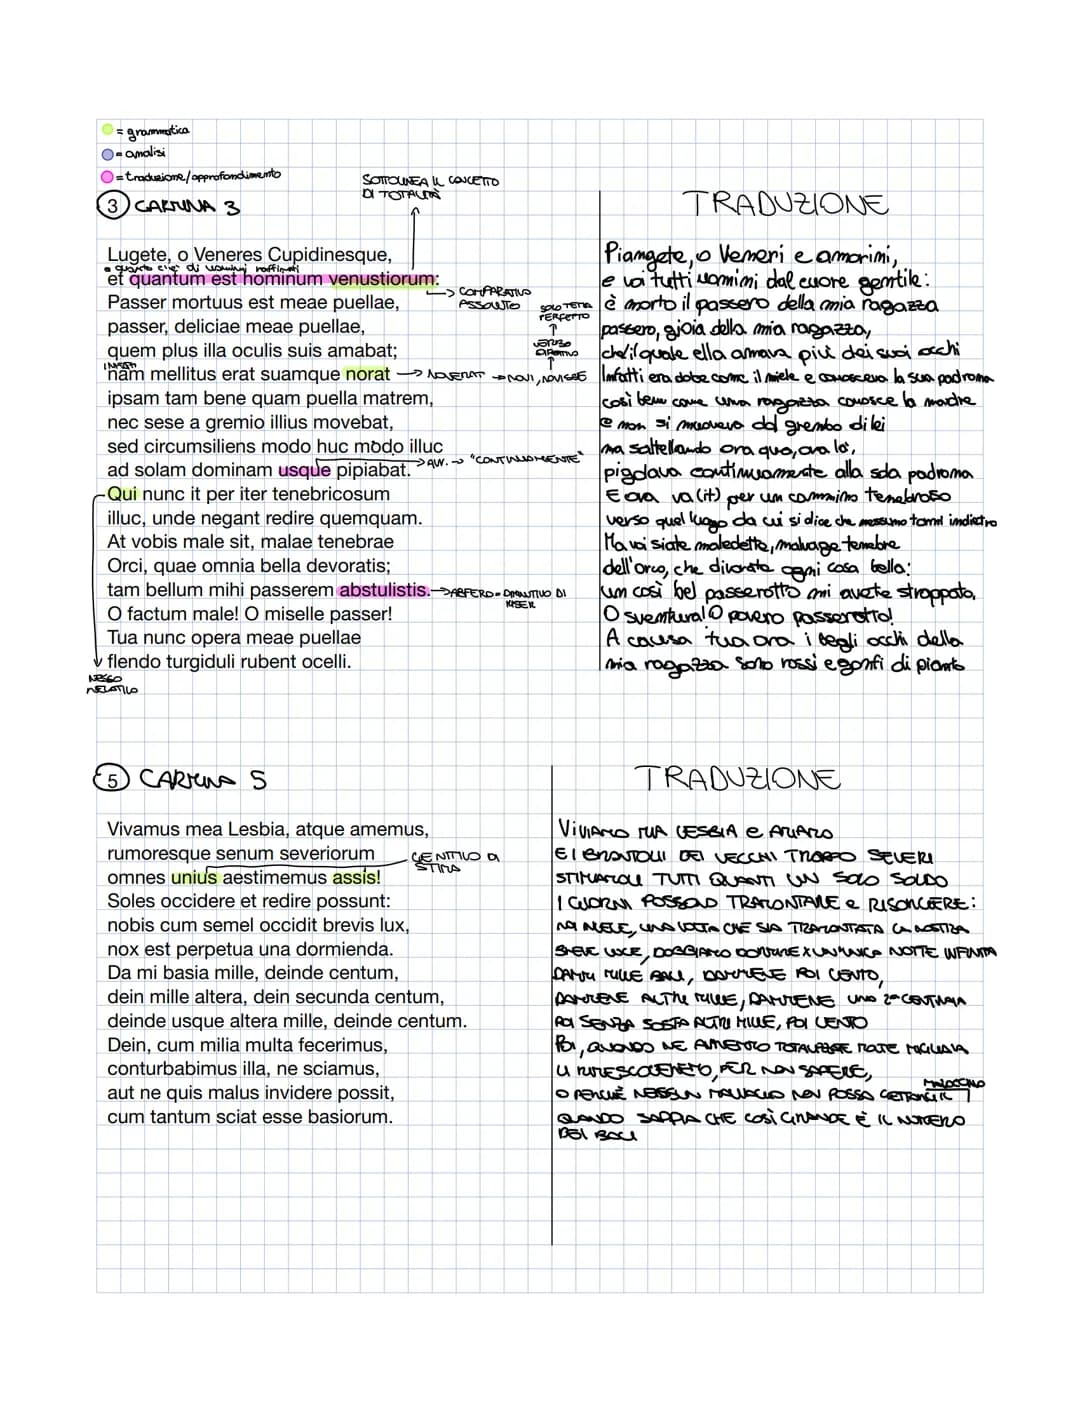 = grammatica
= analisi
= traduzione/approfondimento
SOTTOLINEA IL CONCETTO
DI TOTALITÀ
3 CARMINA 3
TRADUZIONE
Lugete, o Veneres Cupidinesque,
quanto c'è di uomini raffinati
et quantum est hominum venustiorum:
COMPARATIVO
ASSOLUTO
Passer mortuus est meae puellae,
SOLO TEMA
PERFETTO
passer, deliciae meae puellae,
VERBO
quem plus illa oculis suis amabat;
INFATTI
nam mellitus erat suamque norat → NOVERAT → NOVI, NOVISSE
ipsam tam bene quam puella matrem,
nec sese a gremio illius movebat,
sed circumsiliens modo huc modo illuc
AVV. → "CONTINUAMENTE"
ad solam dominam usque pipiabat.
Qui nunc it per iter tenebricosum
illuc, unde negant redire quemquam.
At vobis male sit, malae tenebrae
Orci, quae omnia bella devoratis;
tam bellum mihi passerem abstulistis. → ABFERO = DIMINUTIVO DI
O factum male! O miselle passer!
Tua nunc opera meae puellae
flendo turgiduli rubent ocelli.
NESSO
RELATIVO
Piangete, o Veneri e amorini,
e voi tutti uomini dal cuore gentile:
è morto il passero della mia ragazza
passero, gioia della mia ragazza,
che il quale ella amava più dei suoi occhi
Infatti era dolce come il miele e conosceva la sua padrona
così bene come una ragazza conosce la madre
e non si muoveva dal grembo di lei
ma saltellando ora qua, ora là,
pigolava continuamente alla sola padrona
E ora va (it) per un cammino tenebroso
verso quel luogo da cui si dice che nessuno torni indietro
Ma voi siate maledette, malvage tenebre
dell'orco, che divorate ogni cosa bella:
un così bel passerotto mi avete strappato,
O sventura! O povero passerotto!
A causa tua ora i begli occhi della
mia ragazza sono rossi e gonfi di pianto
5 CARMINA 5
TRADUZIONE
Vivamus mea Lesbia, atque amemus,
rumoresque senum severiorum
GENITIVO DI
STIMA
omnes unius aestimemus assis!
Soles occidere et redire possunt:
nobis cum semel occidit brevis lux,
nox est perpetua una dormienda.
Da mi basia mille, deinde centum,
dein mille altera, dein secunda centum,
deinde usque altera mille, deinde centum.
Dein, cum milia multa fecerimus,
conturbabimus illa, ne sciamus,
aut ne quis malus invidere possit,
cum tantum sciat esse basiorum.
VIVIAMO MIA LESBIA e AMIAMO
E I BRONTOLII DEI VECCHI TROPPO SEVERI
STIMIAMOLI TUTTI QUANTI UN SOLO SOLDO
I GIORNI POSSONO TRAMONTARE e RISORGERE:
NOI INVECE, UNA VOLTA CHE SIA TRAMONTATA LA NOSTRA
BREVE LUCE, DOBBIAMO DORMIRE X UN'UNICA NOTTE INFINITA
DAMMI MILLE BACI, DAMMENE POI CENTO,
DAMMENE ALTRI MILLE, DAMMENE UNA 2ª CENTINAIA
POI SENZA SOSTA ALTRI MILLE, POI CENTO
POI, QUANDO NE AVREMO TOTALIZZATE MOLTE MIGLIAIA
LI RIMESCOLEREMO, PER NON SAPERE,
MALOCCHIO
O PERCHÈ NESSUN MALVAGIO NON POSSA GETTARCI IL
QUANDO SAPPIA CHE COSÌ GRANDE È IL NUMERO
DEI BACI